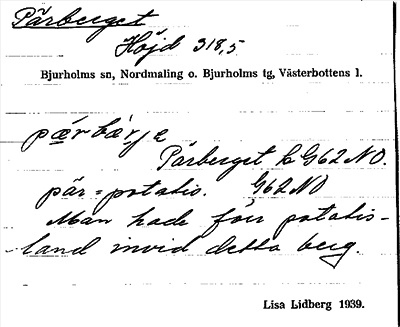 Pärberget
Höjd 318,5
Bjurholms sn, Nordmaling o. Bjurholms tg, Västerbottens l.
pǽrbær̨je
Pärberget k G62NO.
pär = potatis. G62NO
Man hade förr potatis-
land invid detta berg.
Lisa Lidberg 1939.